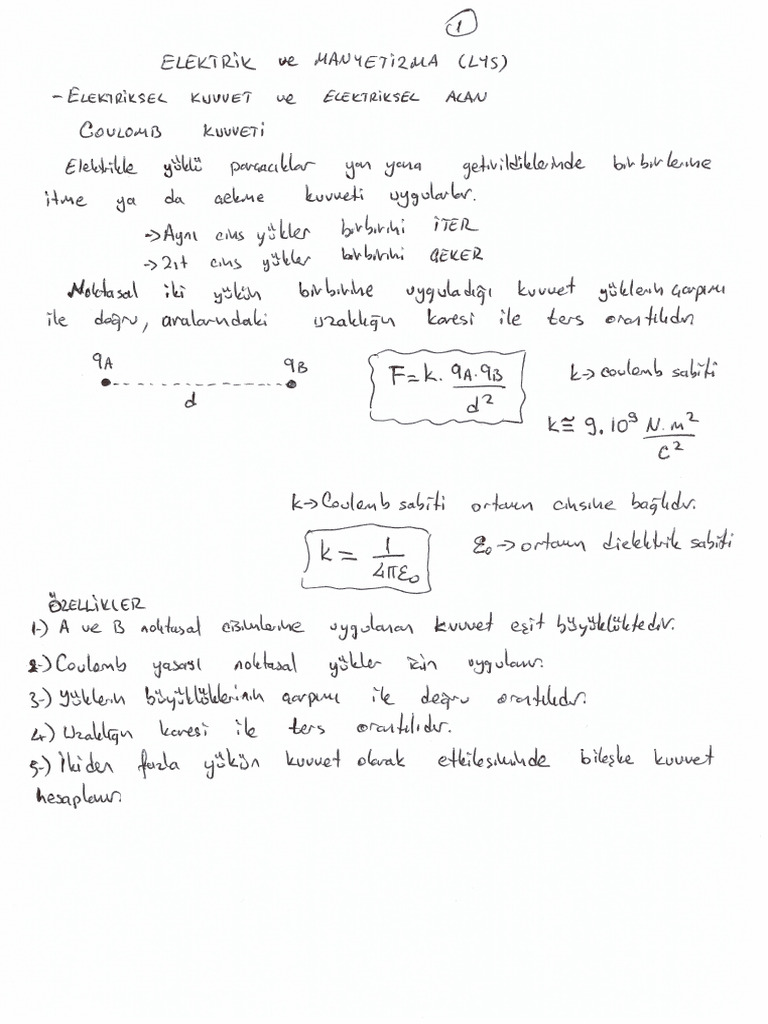 1
ELEKTRİK ve MANYETİZMA (LYS)
- ELEKTRİKSEL KUVVET ve ELEKTRİKSEL ALAN
COULOMB KUVVETİ
Elektrikle yüklü parçacıklar yan yana getirildiklerinde birbirlerine
itme ya da çekme kuvveti uygularlar.
-> Aynı cins yükler birbirini İTER
-> Zıt cins yükler birbirini ÇEKER
Noktasal iki yükün birbirine uyguladığı kuvvet yüklerin çarpımı
ile doğru, aralarındaki uzaklığın karesi ile ters orantılıdır
qA qB
d
F = k. qA.qB / d²
k -> coulomb sabiti
k ≅ 9.10⁹ N.m² / C²
k -> Coulomb sabiti ortamın cinsine bağlıdır.
k = 1 / 4πε₀
ε₀ -> ortamın dielektrik sabiti
ÖZELLİKLER
1-) A ve B noktasal cisimlerine uygulanan kuvvet eşit büyüklüktedir.
2-) Coulomb yasası noktasal yükler için uygulanır.
3-) Yüklerin büyüklüklerinin çarpımı ile doğru orantılıdır.
4-) Uzaklığın karesi ile ters orantılıdır.
5-) İkiden fazla yükün kuvvet olarak etkileşiminde bileşke kuvvet
hesaplanır.